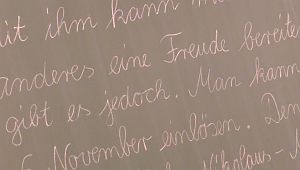 ihm kann
anderes eine Freude bereite
gibt es jedoch. Man kann
November einlösen. Den
Nikolaus-